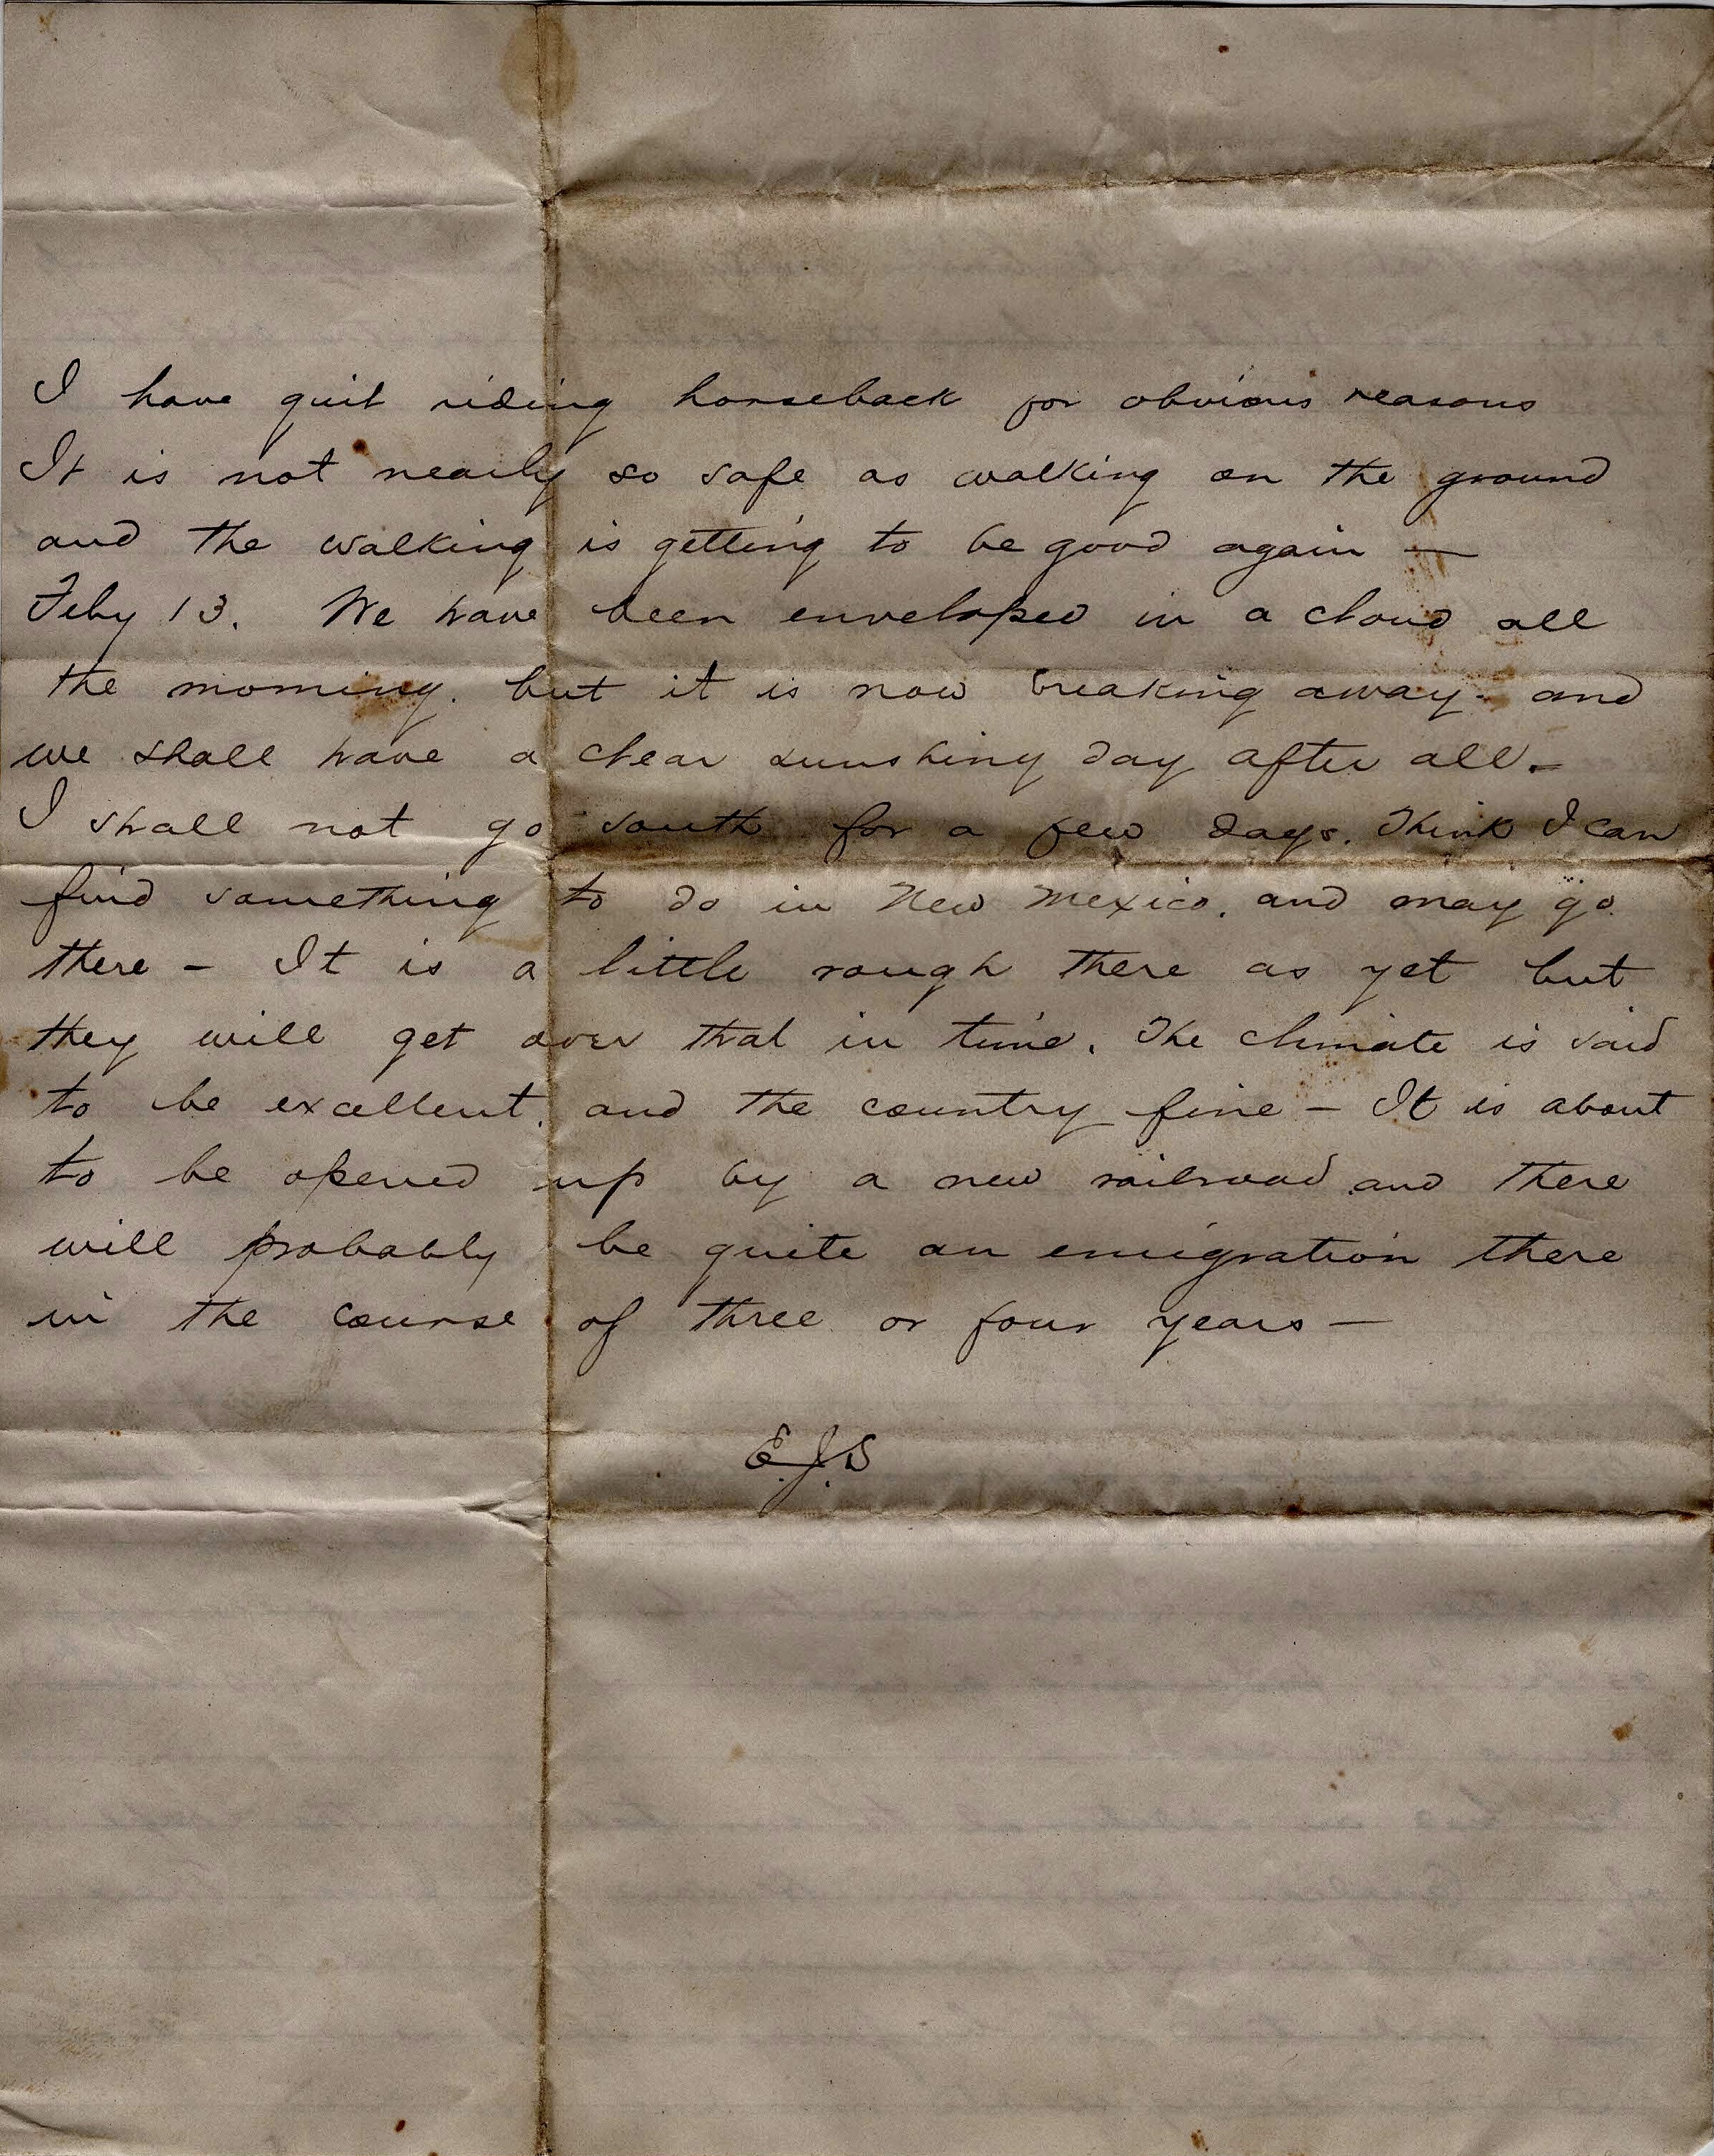 I have quit riding horseback for obvious reasons
It is not nearly so safe as walking on the ground
and the walking is getting to be good again —
Feby 13. We have been enveloped in a cloud all
the morning. but it is now breaking away. and
we shall have a clear sunshiny day after all. —
I shall not go south for a few days. Think I can
find something to do in New Mexico. and may go
there — It is a little rough there as yet but
they will get over that in time. The climate is said
to be excellent. and the country fine — It is about
to be opened up by a new railroad and there
will probably be quite an emigration there
in the course of three or four years —
E.J.S